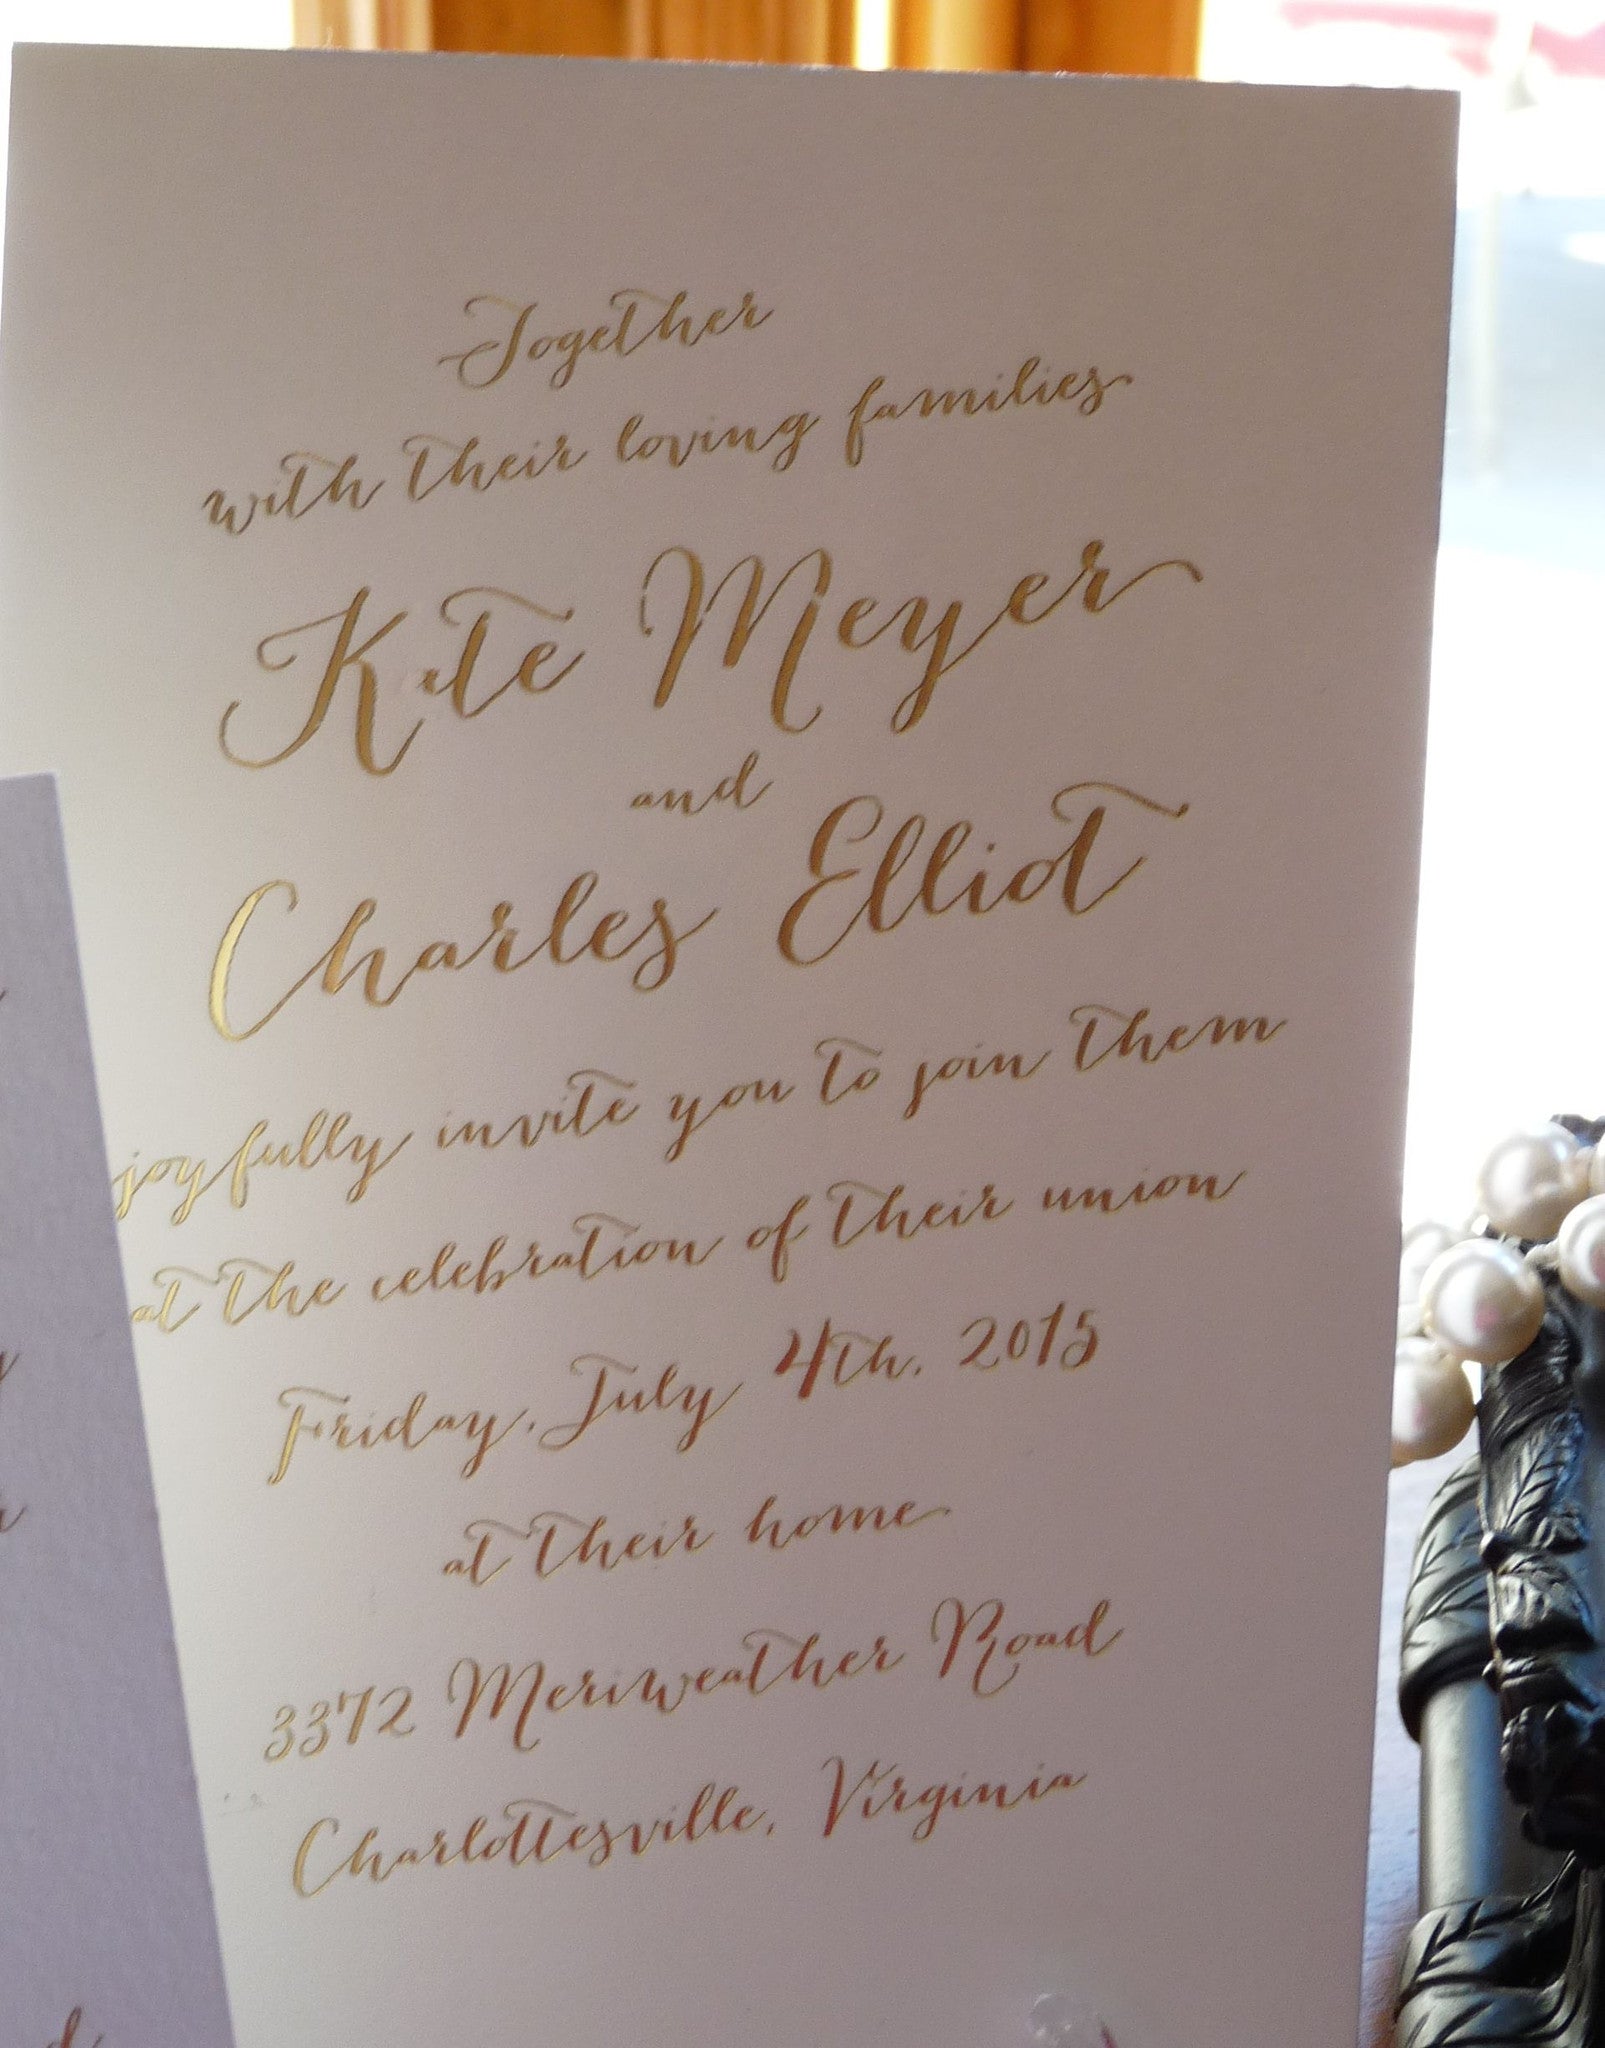 Together
with their loving families
Kate Meyer
and
Charles Elliot
joyfully invite you to join them
at the celebration of their union
Friday, July 4th, 2015
at their home
3372 Meriweather Road
Charlottesville, Virginia